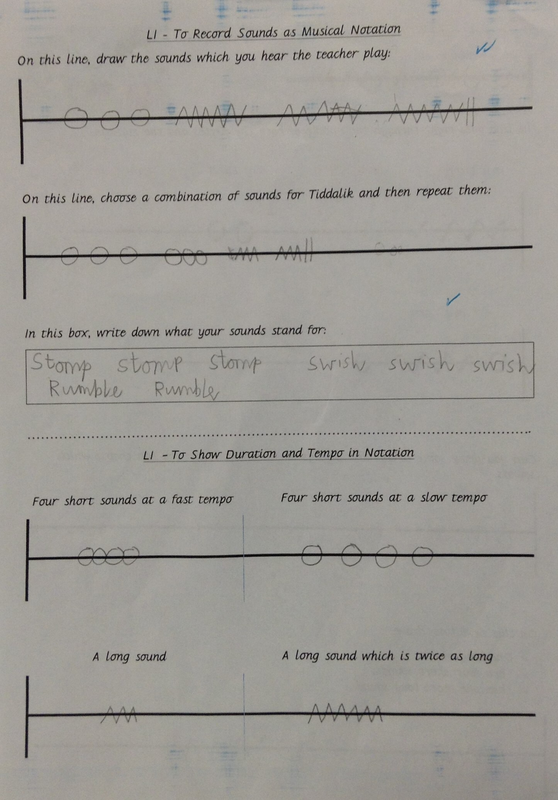 LI - To Record Sounds as Musical Notation
On this line, draw the sounds which you hear the teacher play:
On this line, choose a combination of sounds for Tiddalik and then repeat them:
In this box, write down what your sounds stand for:
Stomp stomp stomp swish swish swish
Rumble Rumble
LI - To Show Duration and Tempo in Notation
Four short sounds at a fast tempo Four short sounds at a slow tempo
A long sound A long sound which is twice as long